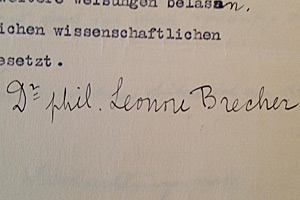 weitere Weisungen belassen,
ichen wissenschaftlichen
esetzt.
Dr phil. Leonore Brecher